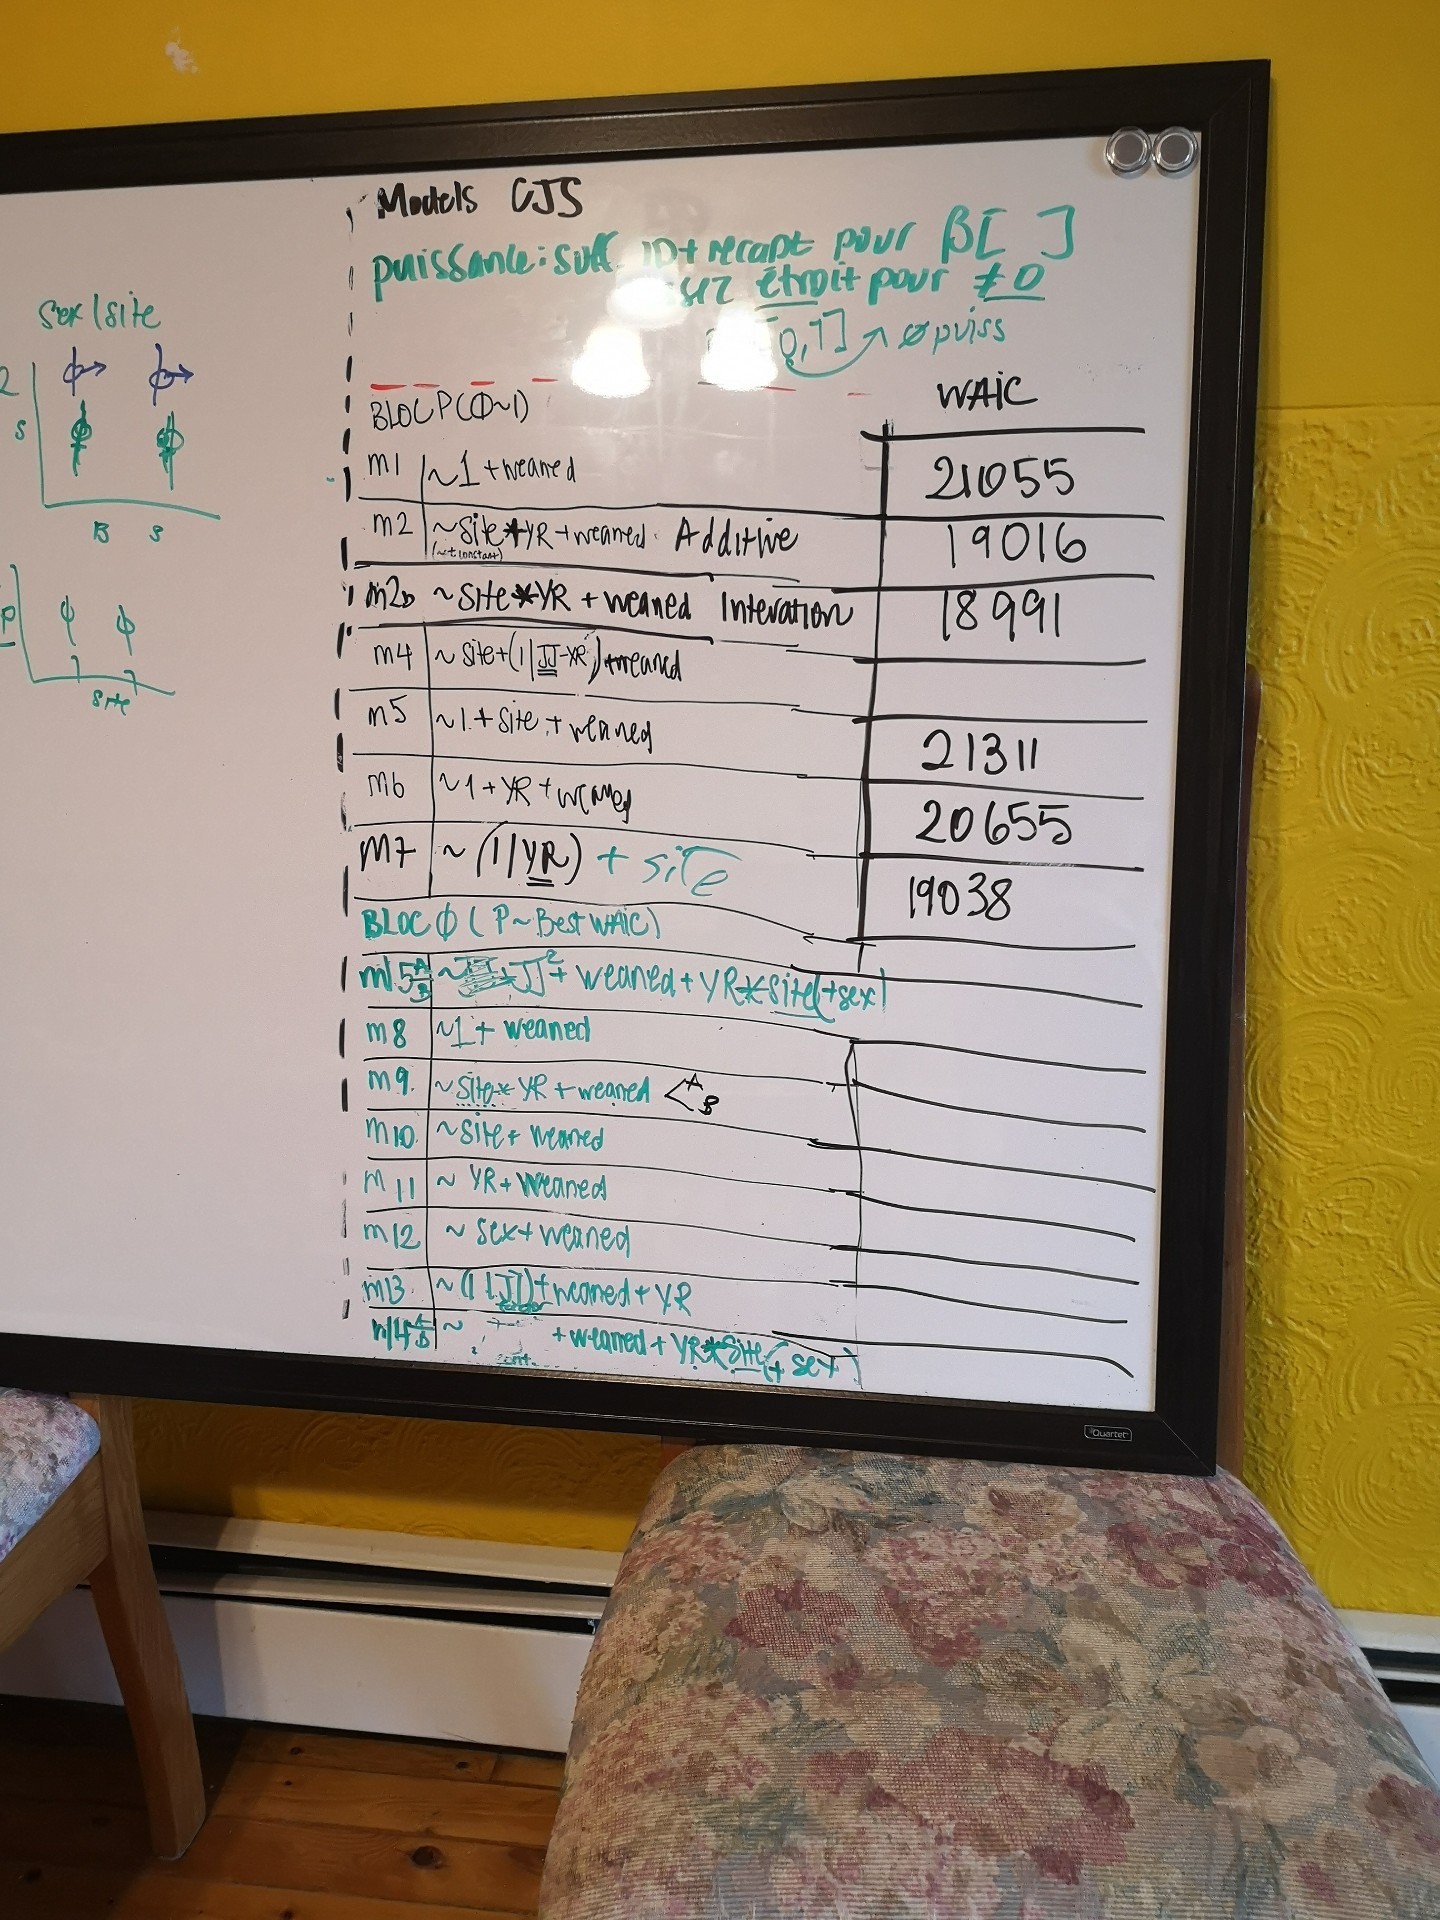 Sex/site
2
S
B S
P
Site
Models CJS
puissance: suff. ID + recapt pour β[ ]
étroit pour ≠ 0
0,1] ↗ ø puiss
WAIC
BLOC P(Φ~1)
m1 ~1 + weaned 21055
m2 ~site*YR + weaned Additive 19016
m2b ~Site*YR + weaned Interation 18991
m4 ~site+(1|JJ-YR)+weaned
m5 ~1 + site + weaned 21311
m6 ~1 + YR + weaned 20655
m7 ~(1|YR) + site 19038
BLOC Φ (P~Best WAIC)
m15 A B ~ JJ² + weaned + YR*site(+sex)
m8 ~1 + weaned
m9. ~site* YR + weaned < A B
m10. ~site + weaned
m11 ~ YR + weaned
m12 ~ sex + weaned
m13 ~(1|JJ)+weaned + YR
m14 A B ~ + weaned + YR*Site(+ sex)
Quartet